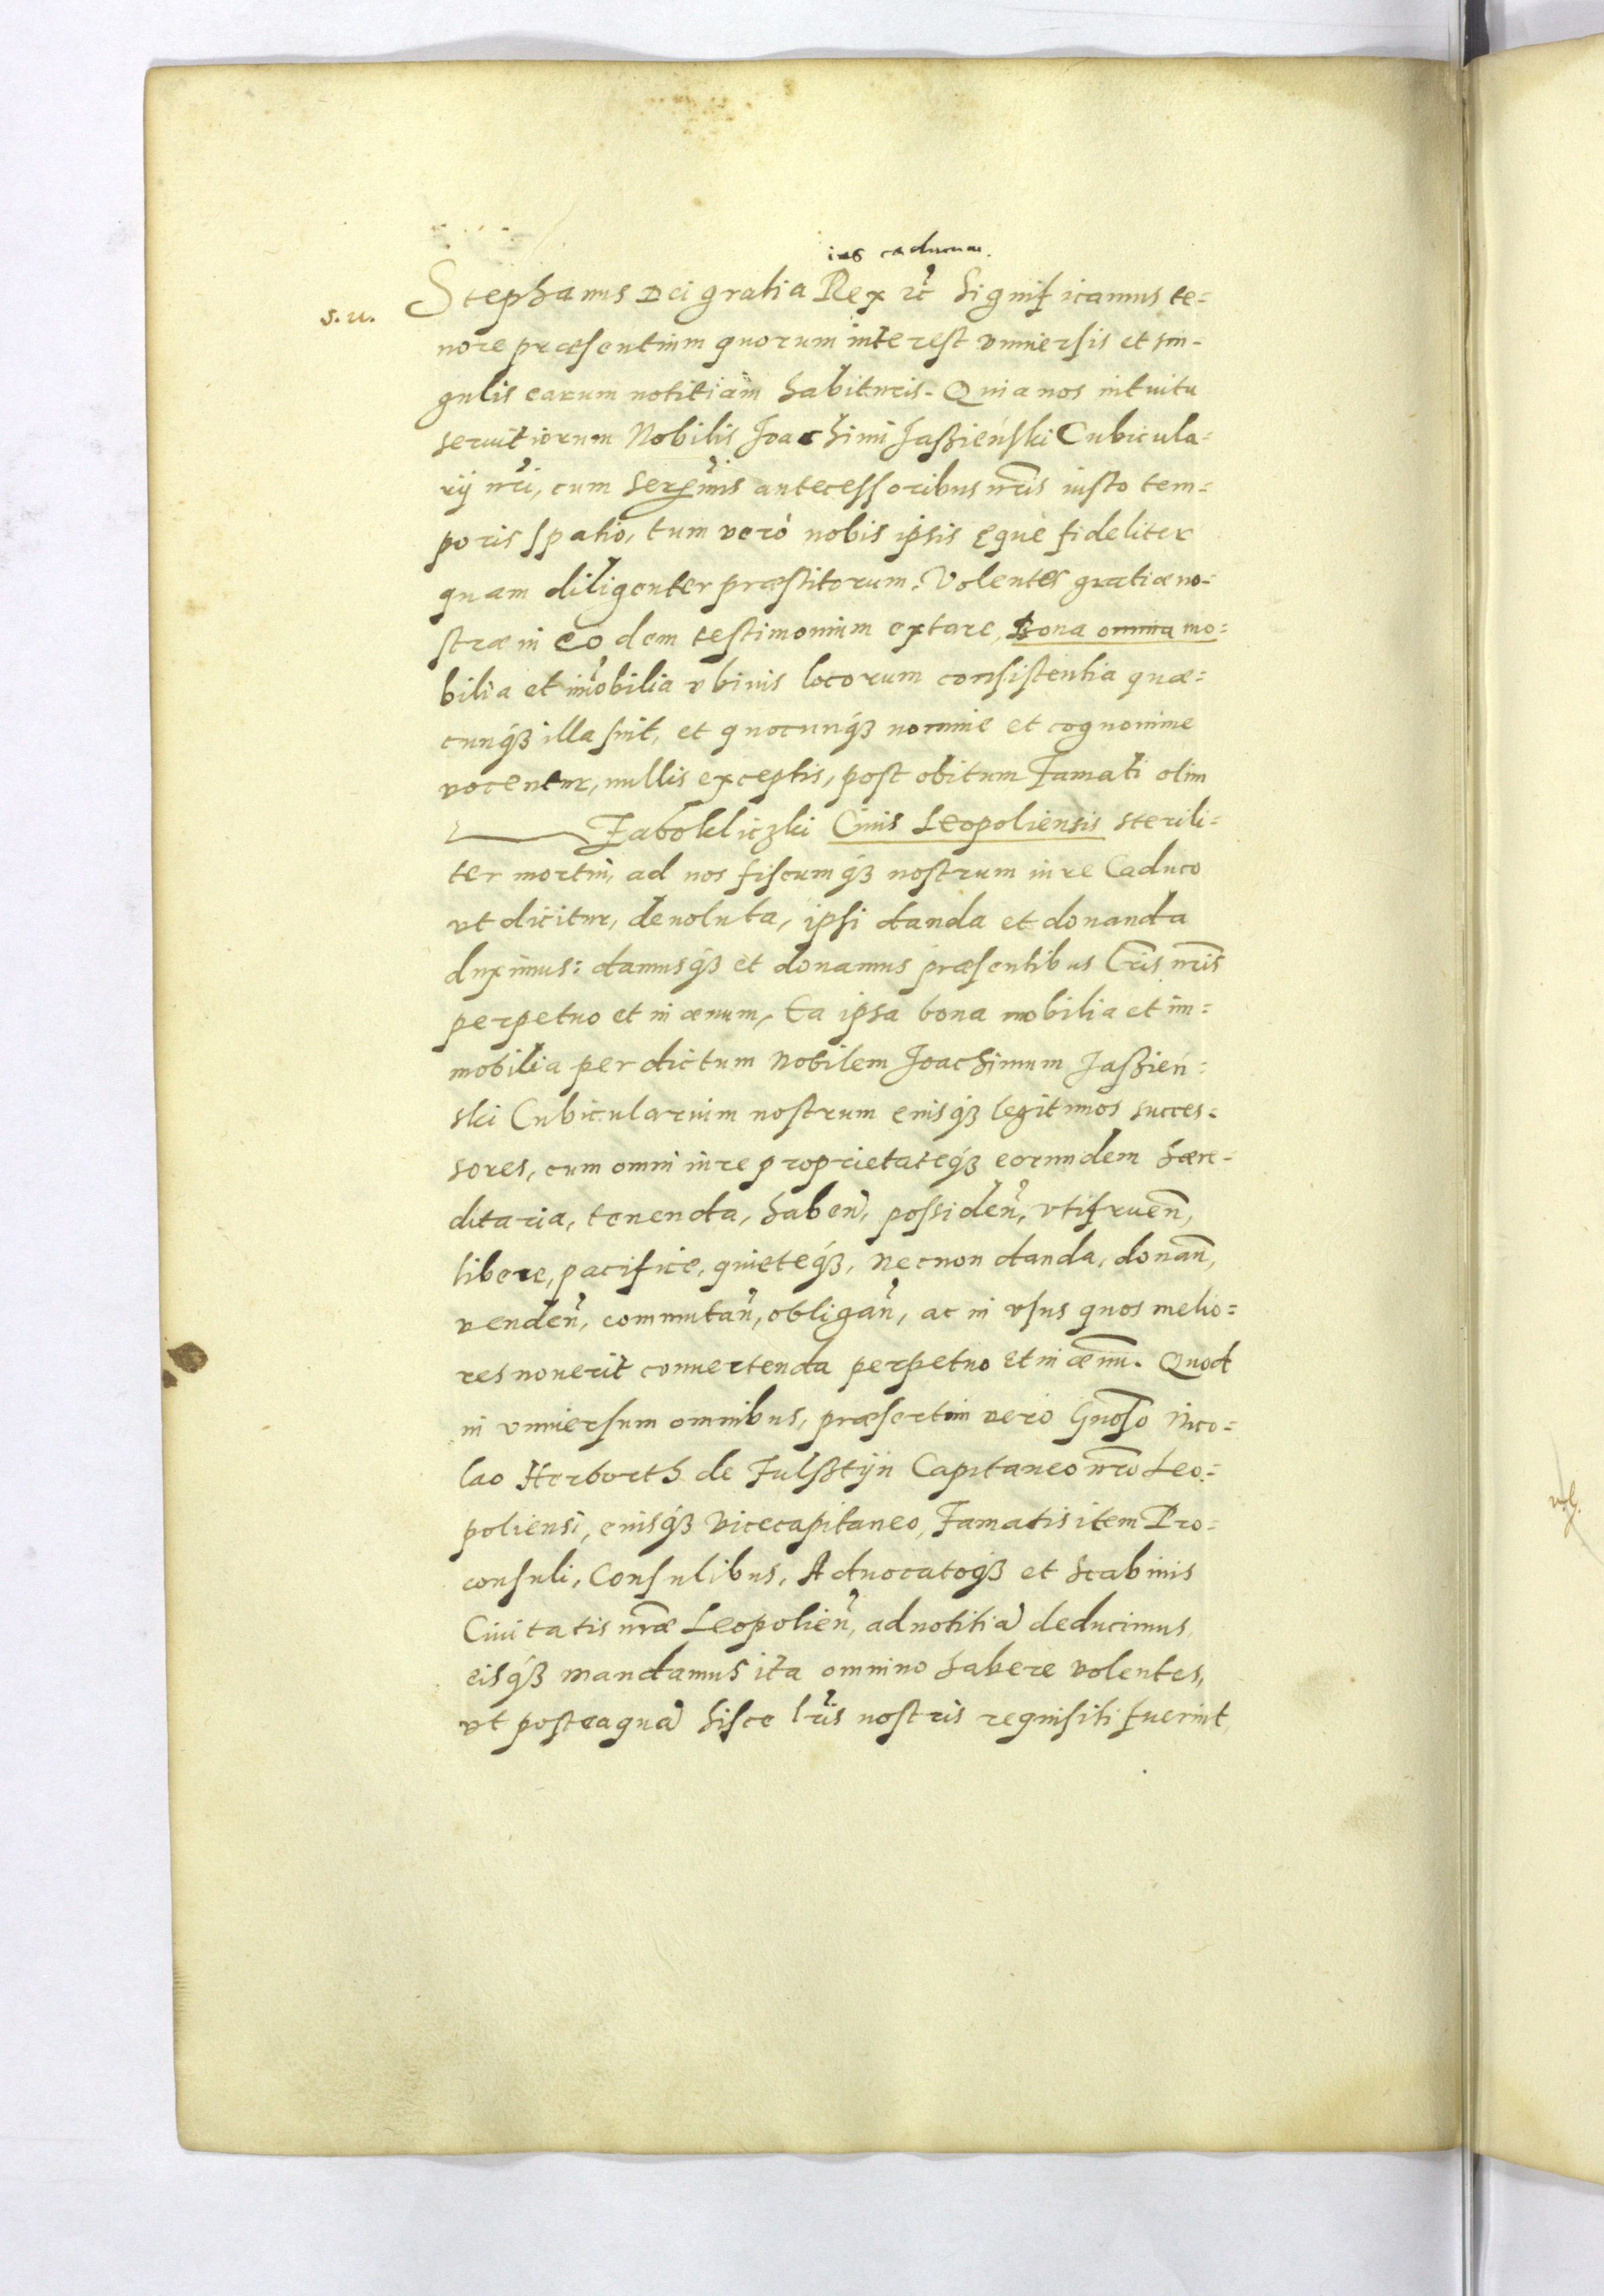 ius caducum.
s. u.
Stephanus Dei gratia Rex etc̃ Significamus te=
nore præsentium quorum interest vniuersis et sin-
gulis earum notitiam habituris. Quia nos intuitu
seruitiorum Nobilis Joachimi Jaßieński Cubicula=
rij nr̃i, cum Serẽmis antecessoribus nr̃is iusto tem=
poris spatio, tum verò nobis ipsis ęquè fideliter
quam diligenter præstitorum: Volentes gratiæ no-
stræ in eo dem testimonium extare, Bona omnia mo=
bilia et im̃obilia vbiuis locorum consistentia quæ=
cunqꝫ illa sint, et quocunqꝫ nomine et cognomine
vocentur, nullis exceptis, post obitum Famati olim
Zabokliczki Ciuis Leopoliensis sterili=
ter mortui, ad nos fiscumqꝫ nostrum iure Caduco
vt dicitur, deuoluta, ipsi danda et donanda
duximus: damusqꝫ et donamus præsentibus Lr̃is nr̃is
perpetuo et in æuum, Ea ipsa bona mobilia et im=
mobilia per dictum Nobilem Joachimum Jaßień=
ski Cubicularium nostrum eiusqꝫ legitimos succes=
sores, cum omni iure proprietateqꝫ eorundem hære-
ditaria, tenenda, habeñ, possideñ, vtifrueñ,
libere, pacifice, quieteqꝫ, necnon danda, donañ,
vendeñ, commutañ, obligañ, ac in vsus quos melio=
res nouerit conuertenda perpetuo et in æuũ. Quod
in vniuersum omnibus, præsertim vero Gñoso Nico=
lao Herborth de Fulsßtyn Capitaneo nr̃o Leo=
poliensi, eiusqꝫ Vicecapitaneo, Famatis item Pro=
consuli, Consulibus, Aduocatoqꝫ et Scabinis
Ciuitatis nr̃æ Leopolieñ, ad notitiã deducimus,
eisqꝫ mandamus ita omnino habere volentes,
vt posteaquã hisce lr̃is nostris requisiti fuerint,